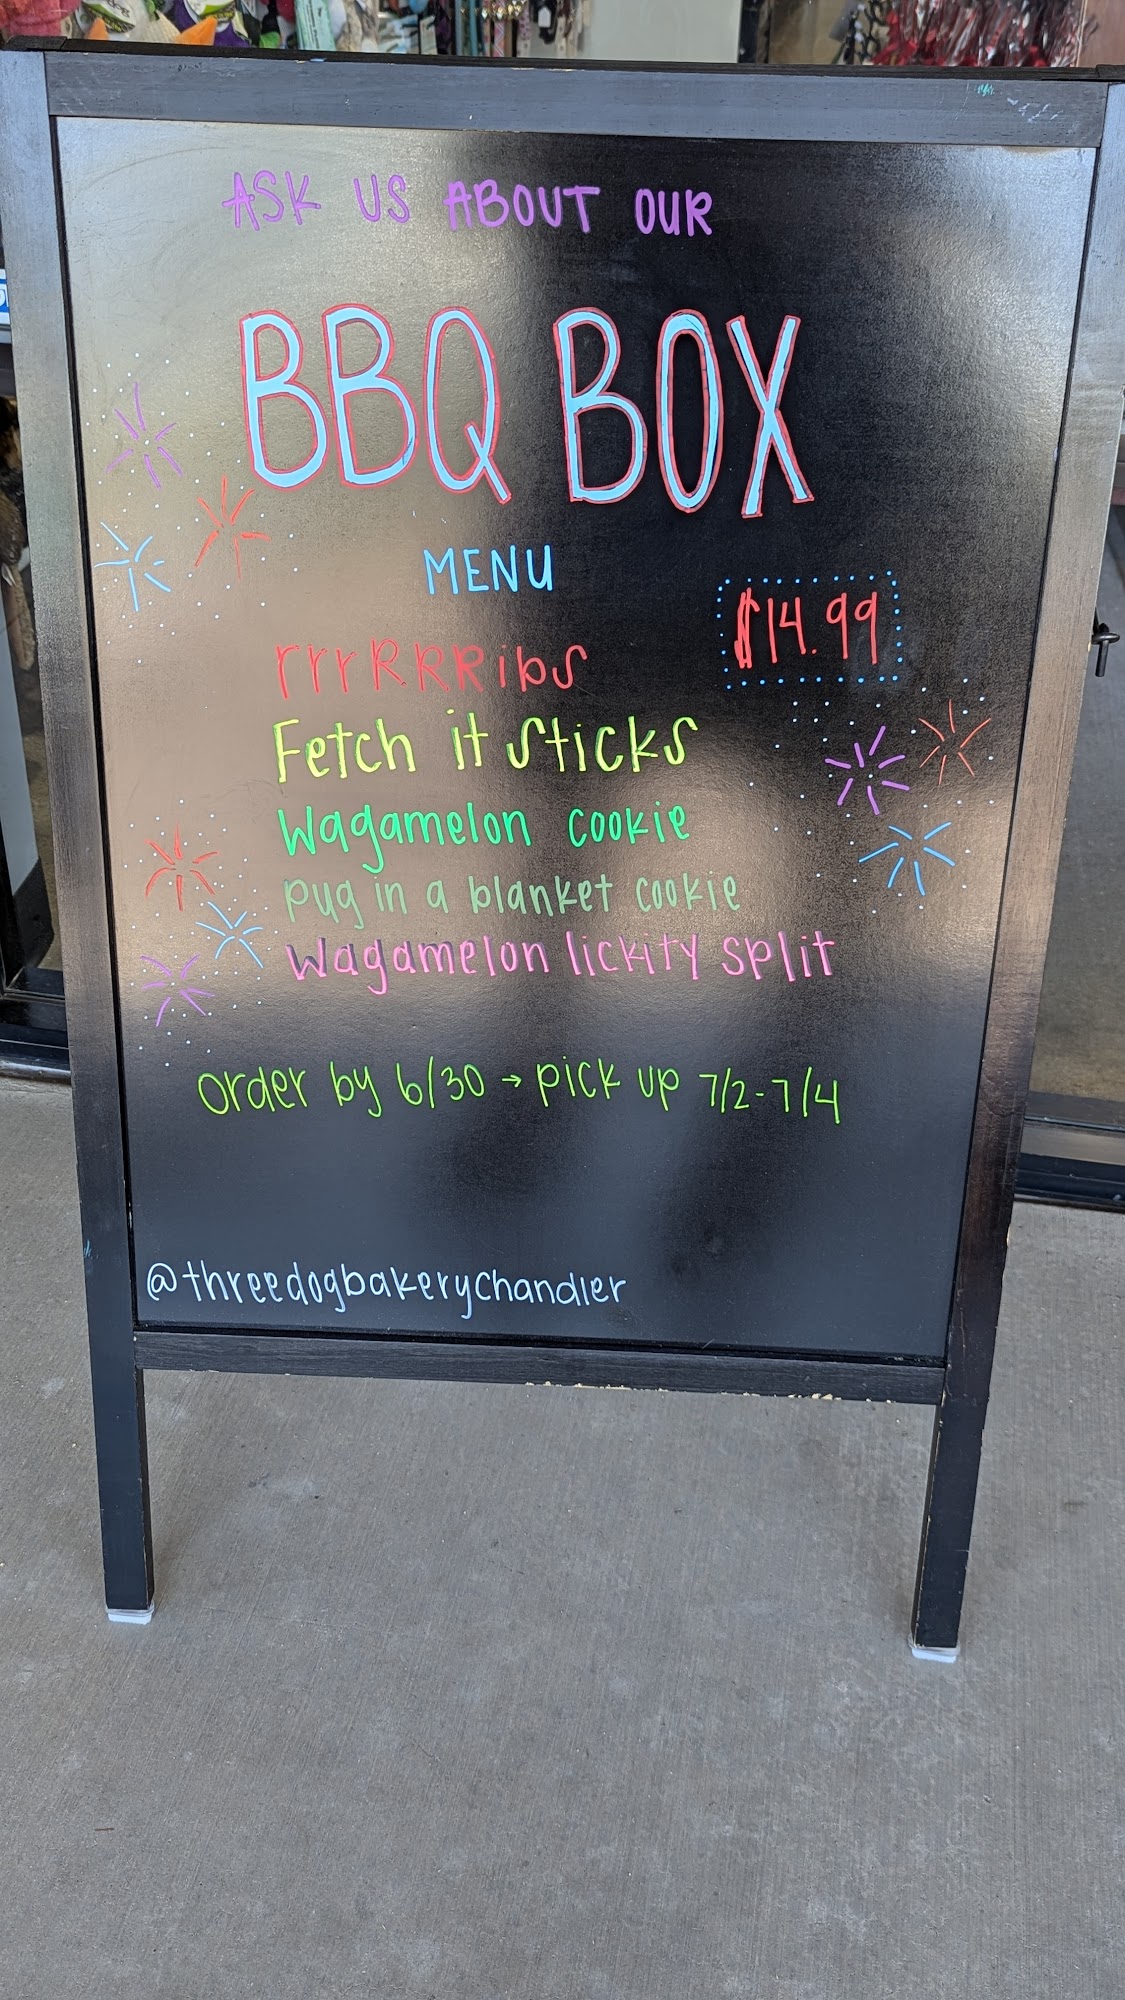 ASK US ABOUT OUR
BBQ BOX
MENU
$14.99
rrrRRRibs
Fetch it Sticks
Wagamelon cookie
pug in a blanket cookie
Wagamelon lickity split
Order by 6/30 → pick up 7/2-7/4
@threedogbakerychandler